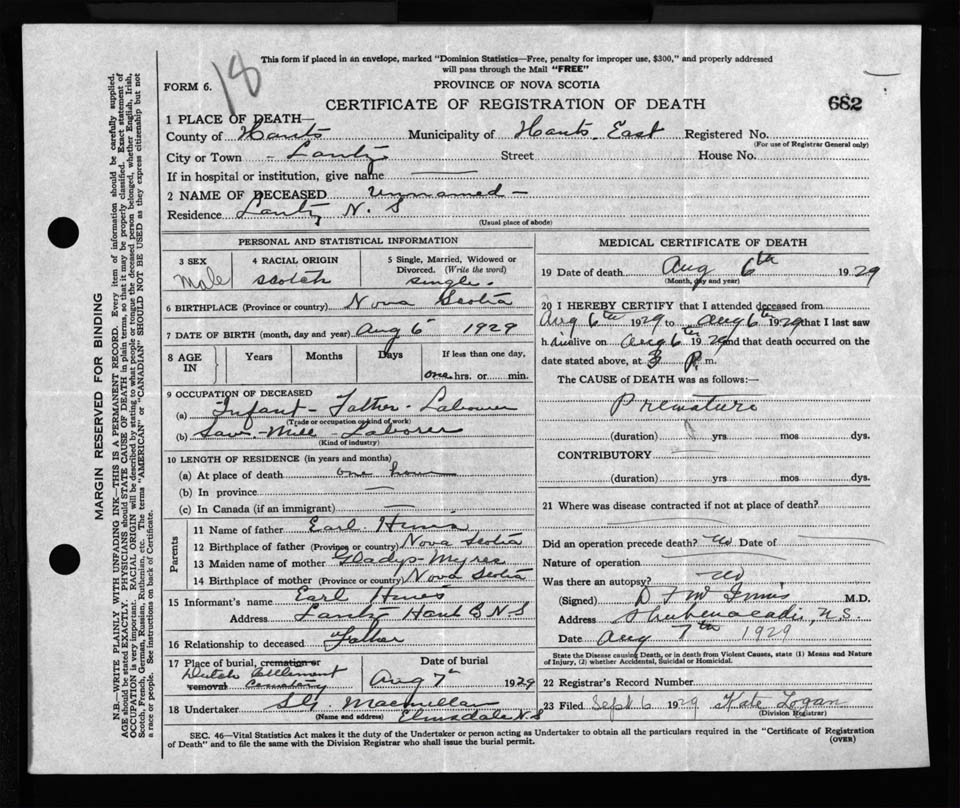 This form if placed in an envelope, marked "Dominion Statistics—Free, penalty for improper use, $300," and properly addressed
will pass through the Mail "FREE"
18
FORM 6.
PROVINCE OF NOVA SCOTIA
CERTIFICATE OF REGISTRATION OF DEATH
682
1 PLACE OF DEATH—
County of Hants Municipality of Hants East Registered No.
(For use of Registrar General only)
City or Town - Lantz Street House No.
If in hospital or institution, give name —
2 NAME OF DECEASED Unnamed —
Residence Lantz N. S
(Usual place of abode)
PERSONAL AND STATISTICAL INFORMATION
3 SEX 4 RACIAL ORIGIN 5 Single, Married, Widowed or
Divorced. (Write the word)
Male Scotch Single.
6 BIRTHPLACE (Province or country) Nova Scotia
7 DATE OF BIRTH (month, day and year) Aug 6 1929
8 AGE IN Years Months Days If less than one day,
one hrs. or min.
9 OCCUPATION OF DECEASED
(a) Infant - Father - Labourer
(Trade or occupation or kind of work)
(b) Saw-Mill - Laborer
(Kind of industry)
10 LENGTH OF RESIDENCE (in years and months)
(a) At place of death one hour
(b) In province —
(c) In Canada (if an immigrant) —
Parents
11 Name of father Earl
12 Birthplace of father (Province or country) Nova Scotia
13 Maiden name of mother Gladys Myres
14 Birthplace of mother (Province or country) Nova Scotia
15 Informant's name Earl
Address Lantz Hants N S
16 Relationship to deceased Father
17 Place of burial, cremation or Date of burial
Dutch Settlement
removal Cemetery Aug 7 1929
18 Undertaker Macmillan
(Name and address) Elmsdale N. S
MEDICAL CERTIFICATE OF DEATH
19 Date of death Aug 6th 1929
(Month, day and year)
20 I HEREBY CERTIFY that I attended deceased from
Aug 6th 1929 to Aug 6th 1929 that I last saw
him alive on Aug 6th 1929 and that death occurred on the
date stated above, at 3 P. m.
The CAUSE OF DEATH was as follows:—
Premature
(duration) yrs mos dys.
CONTRIBUTORY
(duration) yrs mos dys.
21 Where was disease contracted if not at place of death?
Did an operation precede death? No Date of
Nature of operation
Was there an autopsy? No
(Signed) D F McInnis M.D.
Address Shubenacadie, N.S.
Date Aug 7th 1929
State the Disease causing Death, or in death from Violent Causes, state (1) Means and Nature
of Injury, (2) whether Accidental, Suicidal or Homicidal.
22 Registrar's Record Number
23 Filed Sept 6 1929 Kate Logan
(Division Registrar)
SEC. 46—Vital Statistics Act makes it the duty of the Undertaker or person acting as Undertaker to obtain all the particulars required in the "Certificate of Registration
of Death" and to file the same with the Division Registrar who shall issue the burial permit.
(OVER)
MARGIN RESERVED FOR BINDING
N.B.—WRITE PLAINLY WITH UNFADING INK—THIS IS A PERMANENT RECORD. Every item of information should be carefully supplied.
AGE should be stated EXACTLY. PHYSICIANS should STATE CAUSE OF DEATH in plain terms, so that it may be properly classified. Exact statement of
OCCUPATION is very important. RACIAL ORIGIN will be described by stating to what people or tongue the deceased person belonged, whether English, Irish,
Scotch, French, German, Russian, Ruthenian, etc. The terms "AMERICAN" or "CANADIAN" SHOULD NOT BE USED as they express citizenship but not
a race or people. See instructions on back of Certificate.